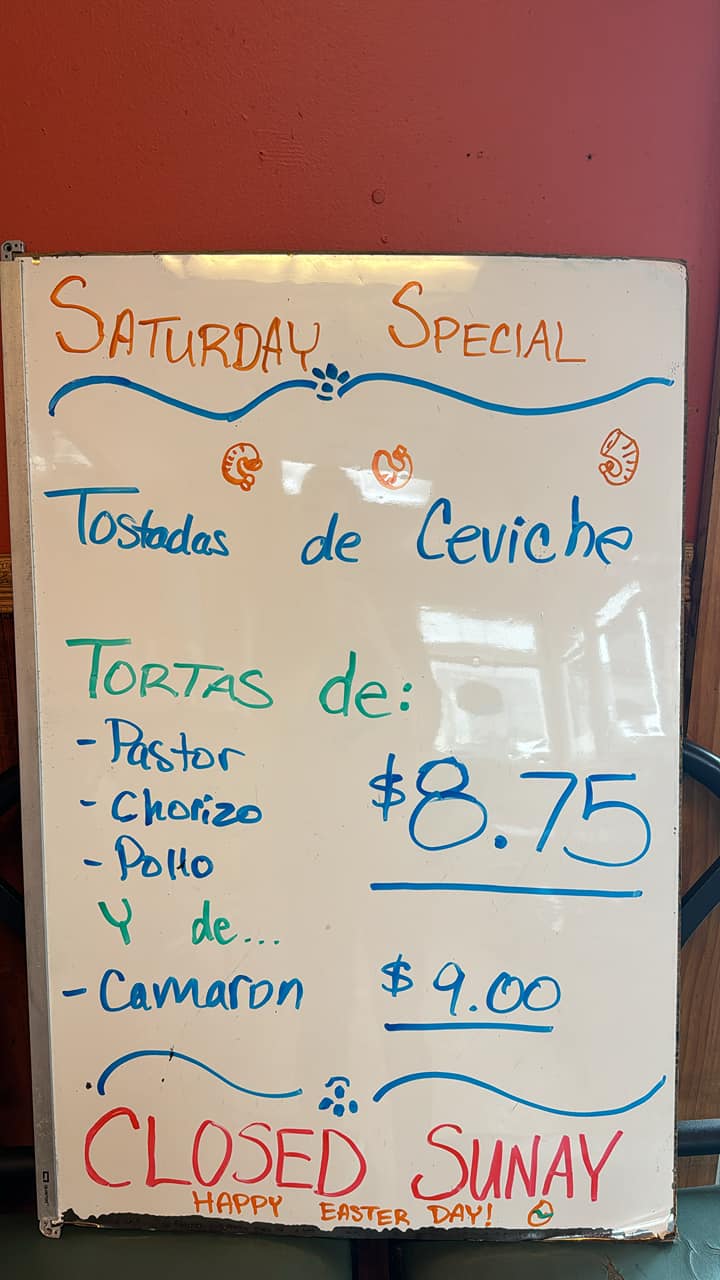 SATURDAY SPECIAL
Tostadas de Ceviche
TORTAS de:
- Pastor
- Chorizo
- Pollo
$8.75
Y de...
- Camaron $9.00
CLOSED SUNAY
HAPPY EASTER DAY!